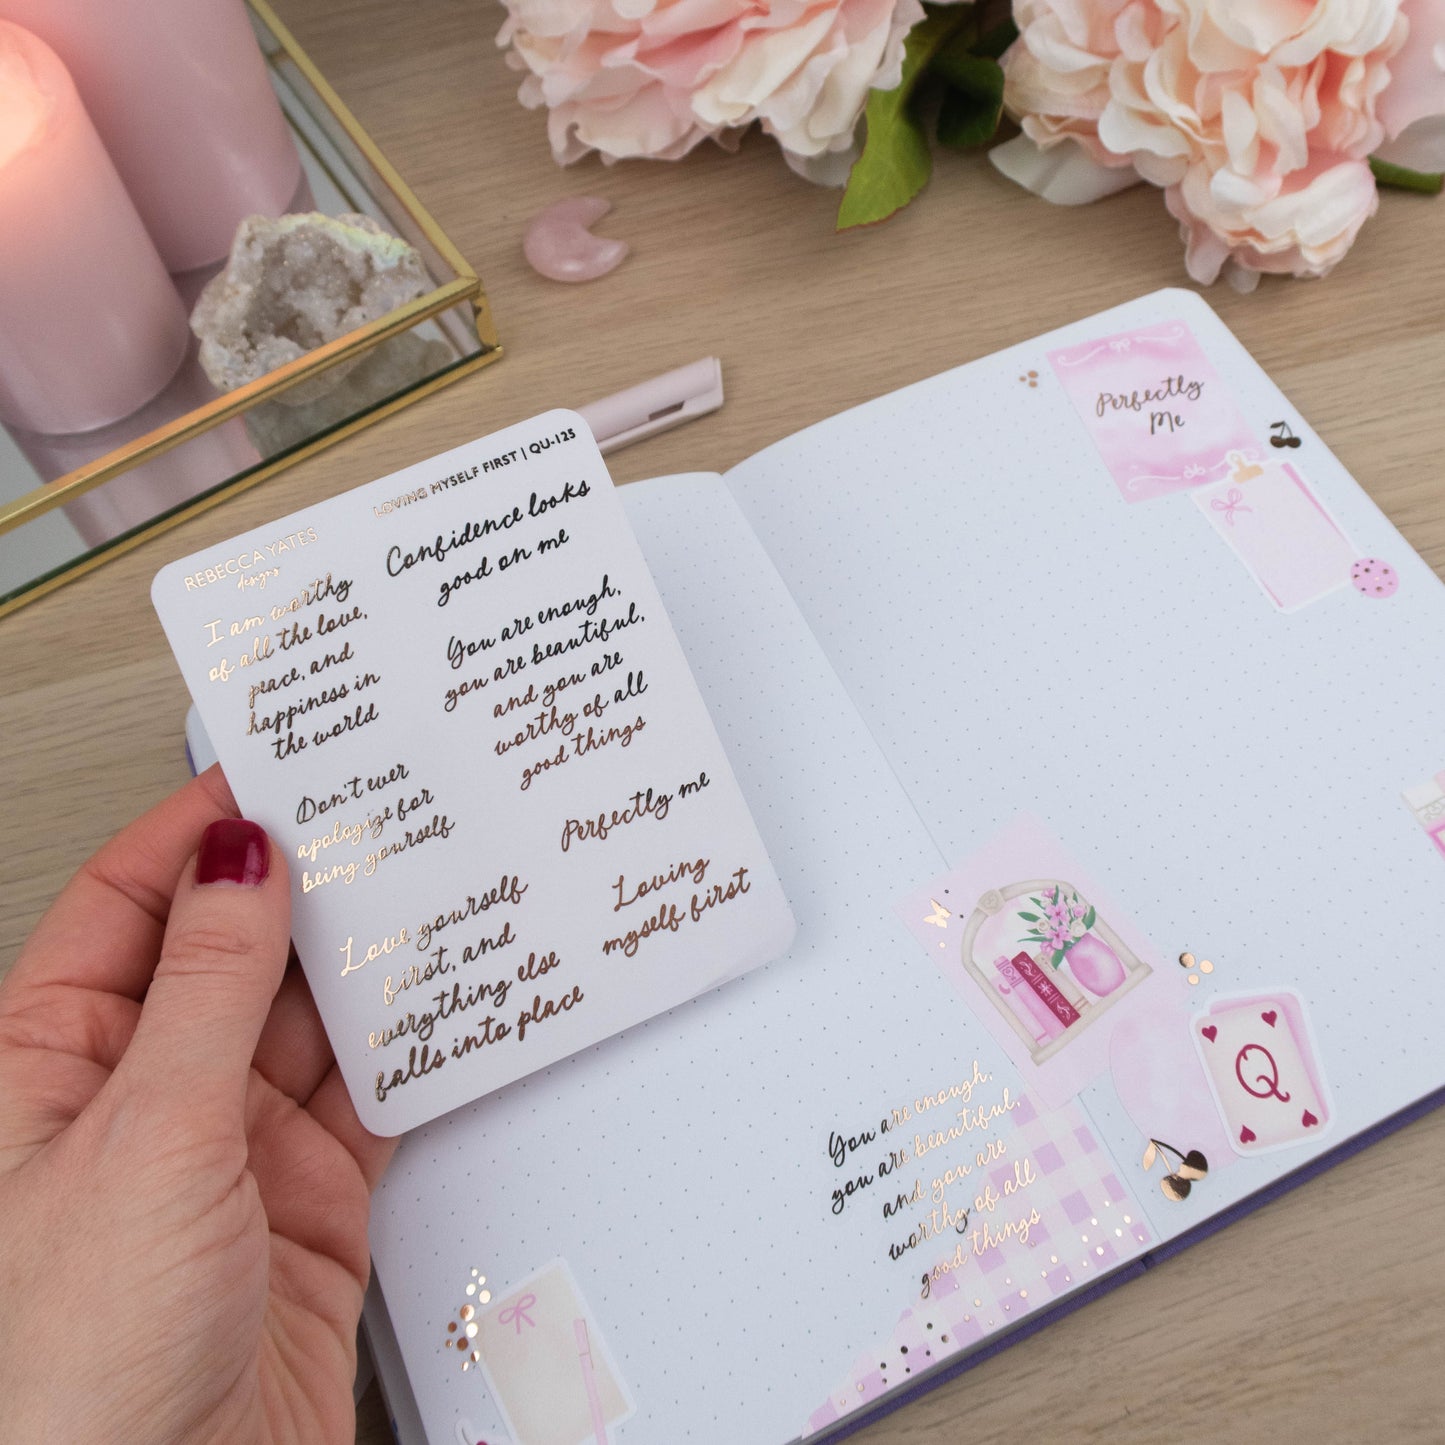 REBECCA YATES
designs
LOVING MYSELF FIRST | QU-125
I am worthy
of all the love,
peace, and
happiness in
the world
Confidence looks
good on me
You are enough,
you are beautiful,
and you are
worthy of all
good things
Don't ever
apologize for
being yourself
Perfectly me
Love yourself
first, and
everything else
falls into place
Loving
myself first
Perfectly
Me
Q
You are enough,
you are beautiful,
and you are
worthy of all
good things